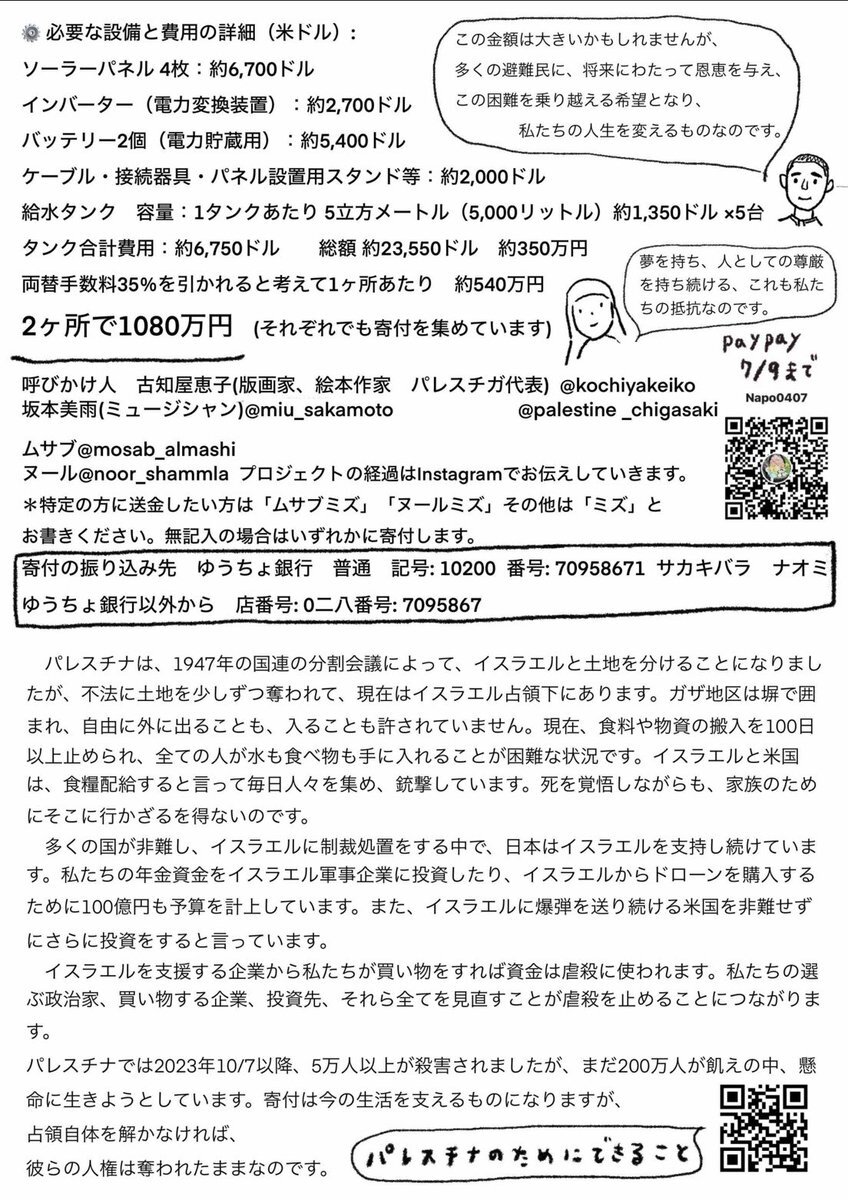 必要な設備と費用の詳細（米ドル）:
ソーラーパネル 4枚：約6,700ドル
インバーター（電力変換装置）：約2,700ドル
バッテリー2個（電力貯蔵用）：約5,400ドル
ケーブル・接続器具・パネル設置用スタンド等：約2,000ドル
給水タンク　容量：1タンクあたり 5立方メートル（5,000リットル）約1,350ドル ×5台
タンク合計費用：約6,750ドル　　総額 約23,550ドル　約350万円
両替手数料35％を引かれると考えて1ヶ所あたり　約540万円
2ヶ所で1080万円　(それぞれでも寄付を集めています)
この金額は大きいかもしれませんが、
多くの避難民に、将来にわたって恩恵を与え、
この困難を乗り越える希望となり、
私たちの人生を変えるものなのです。
夢を持ち、人としての尊厳
を持ち続ける、これも私た
ちの抵抗なのです。
paypay
7/9まで
Napo0407
呼びかけ人　古知屋恵子(版画家、絵本作家　パレスチガ代表) @kochiyakeiko
坂本美雨(ミュージシャン)@miu_sakamoto　　@palestine _chigasaki
ムサブ@mosab_almashi
ヌール@noor_shammla プロジェクトの経過はInstagramでお伝えしていきます。
＊特定の方に送金したい方は「ムサブミズ」「ヌールミズ」その他は「ミズ」と
お書きください。無記入の場合はいずれかに寄付します。
寄付の振り込み先　ゆうちょ銀行　普通　記号: 10200 番号: 70958671 サカキバラ　ナオミ
ゆうちょ銀行以外から　店番号: 0二八番号: 7095867
パレスチナは、1947年の国連の分割会議によって、イスラエルと土地を分けることになりまし
たが、不法に土地を少しずつ奪われて、現在はイスラエル占領下にあります。ガザ地区は塀で囲
まれ、自由に外に出ることも、入ることも許されていません。現在、食料や物資の搬入を100日
以上止められ、全ての人が水も食べ物も手に入れることが困難な状況です。イスラエルと米国
は、食糧配給すると言って毎日人々を集め、銃撃しています。死を覚悟しながらも、家族のため
にそこに行かざるを得ないのです。
多くの国が非難し、イスラエルに制裁処置をする中で、日本はイスラエルを支持し続けていま
す。私たちの年金資金をイスラエル軍事企業に投資したり、イスラエルからドローンを購入する
ために100億円も予算を計上しています。また、イスラエルに爆弾を送り続ける米国を非難せず
にさらに投資をすると言っています。
イスラエルを支援する企業から私たちが買い物をすれば資金は虐殺に使われます。私たちの選
ぶ政治家、買い物する企業、投資先、それら全てを見直すことが虐殺を止めることにつながりま
す。
パレスチナでは2023年10/7以降、5万人以上が殺害されましたが、まだ200万人が飢えの中、懸
命に生きようとしています。寄付は今の生活を支えるものになりますが、
占領自体を解かなければ、
彼らの人権は奪われたままなのです。
パレスチナのためにできること